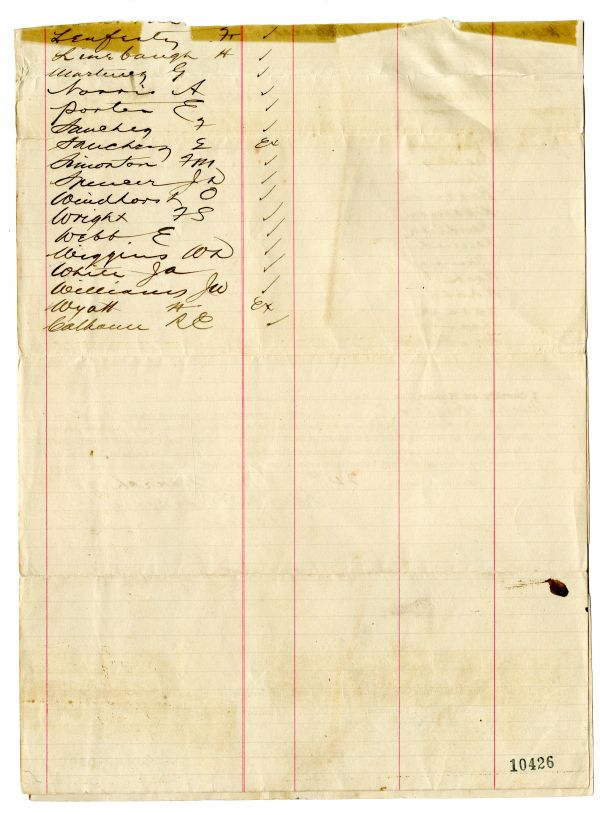 Linebaugh H ✓
Martinez G ✓
Norris A ✓
Porter E ✓
Sanchez F ✓
Sanchez E Ex
Simonton FM ✓
Spencer JD ✓
Windhorst O ✓
Wright FS ✓
Webb E ✓
Wiggins WD ✓
White Ja ✓
Williams JW ✓
Wyatt H Ex
Calhoun RE ✓
10426